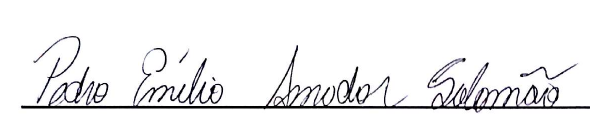 Pedro Emílio Amador Salomão